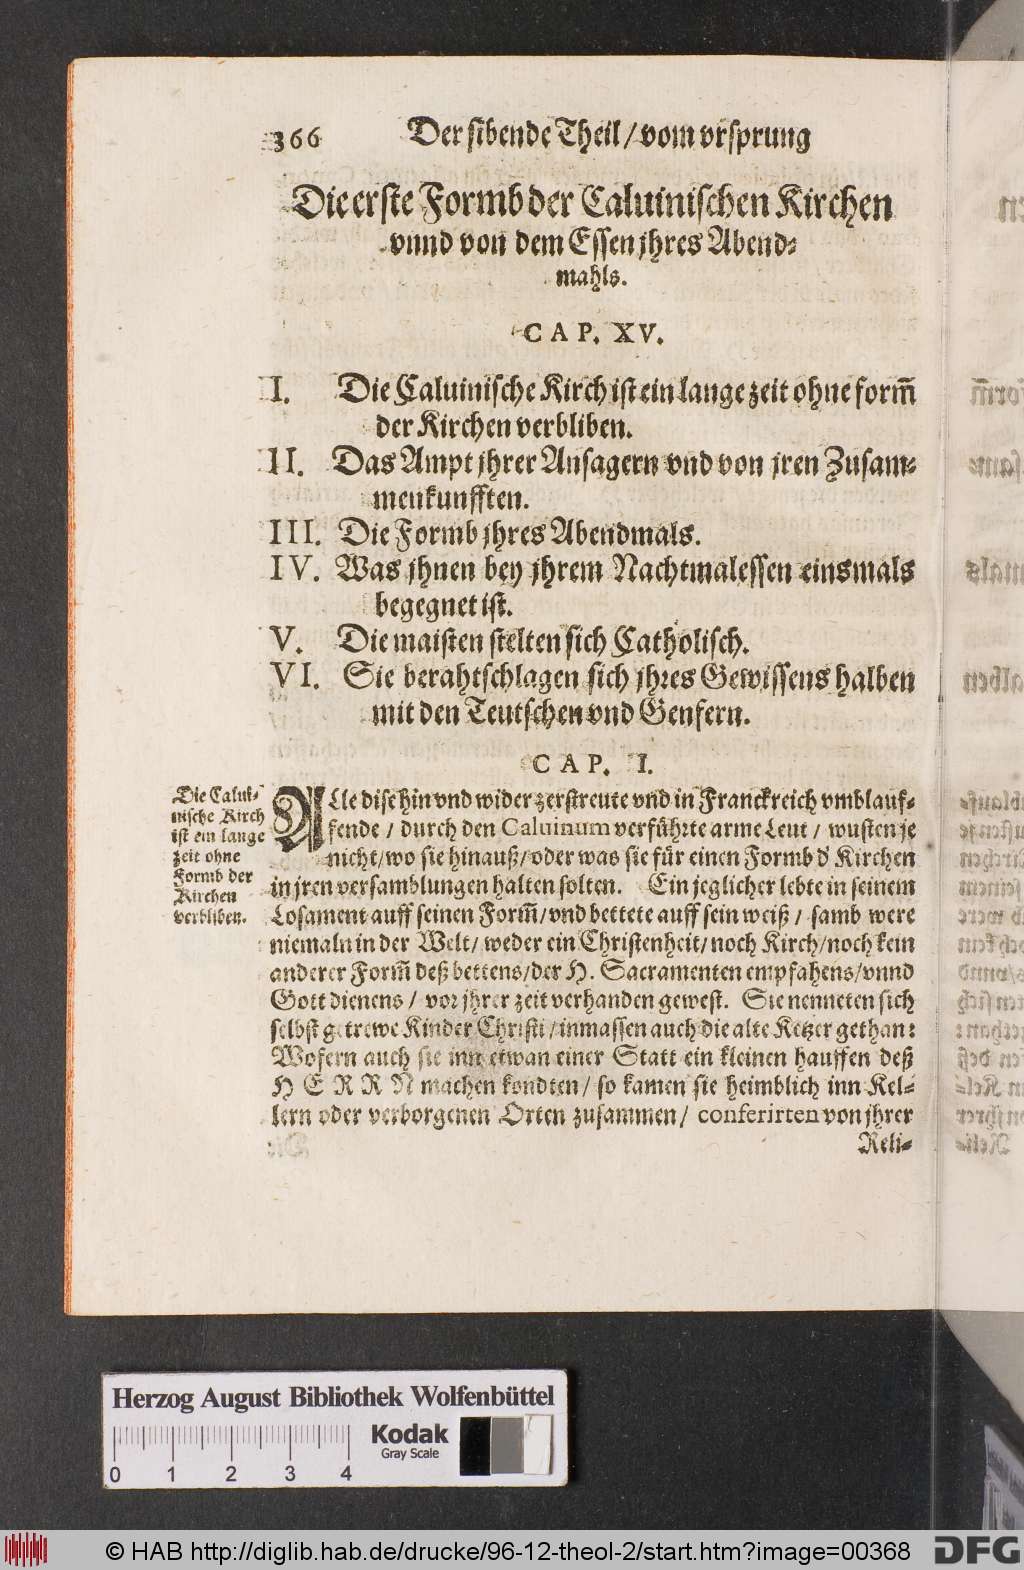 366 Der sibende Theil / vom vrsprung
Die erste Formb der Caluinischen Kirchen
vnnd von dem Essen jhres Abend⸗
mahls.
CAP. XV.
I. Die Caluinische Kirch ist ein lange zeit ohne form̄
der Kirchen verbliben.
II. Das Ampt jhrer Ansagern vnd von jren Zusam⸗
menkunfften.
III. Die Formb jhres Abendmals.
IV. Was jhnen bey jhrem Nachtmalessen einsmals
begegnet ist.
V. Die maisten stelten sich Catholisch.
VI. Sie berahtschlagen sich jhres Gewissens halben
mit den Teutschen vnd Genfern.
CAP. I.
Die Calui⸗
nische Kirch
ist ein lange
zeit ohne
Formb der
Kirchen
verbliben.
ALle dise hin vnd wider zerstreute vnd in Franckreich vmblauf⸗
fende / durch den Caluinum verführte arme Leut / wusten je
nicht / wo sie hinauß / oder was sie für einen Formb d' Kirchen
in jren versamblungen halten solten. Ein jeglicher lebte in seinem
Losament auff seinen Form̄ / vnd bettete auff sein weiß / samb were
niemaln in der Welt / weder ein Christenheit / noch Kirch / noch kein
anderer Form̄ deß bettens / der H. Sacramenten empfahens / vnnd
Gott dienens / vor jhrer zeit verhanden gewest. Sie nenneten sich
selbst getrewe Kinder Christi / inmassen auch die alte Ketzer gethan:
Wofern auch sie inn etwan einer Statt ein kleinen hauffen deß
HERRN machen kondten / so kamen sie heimblich inn Kel⸗
lern oder verborgenen Orten zusammen / conferirten von jhrer
Reli⸗
Herzog August Bibliothek Wolfenbüttel
Kodak
Gray Scale
0 1 2 3 4
© HAB http://diglib.hab.de/drucke/96-12-theol-2/start.htm?image=00368
DFG